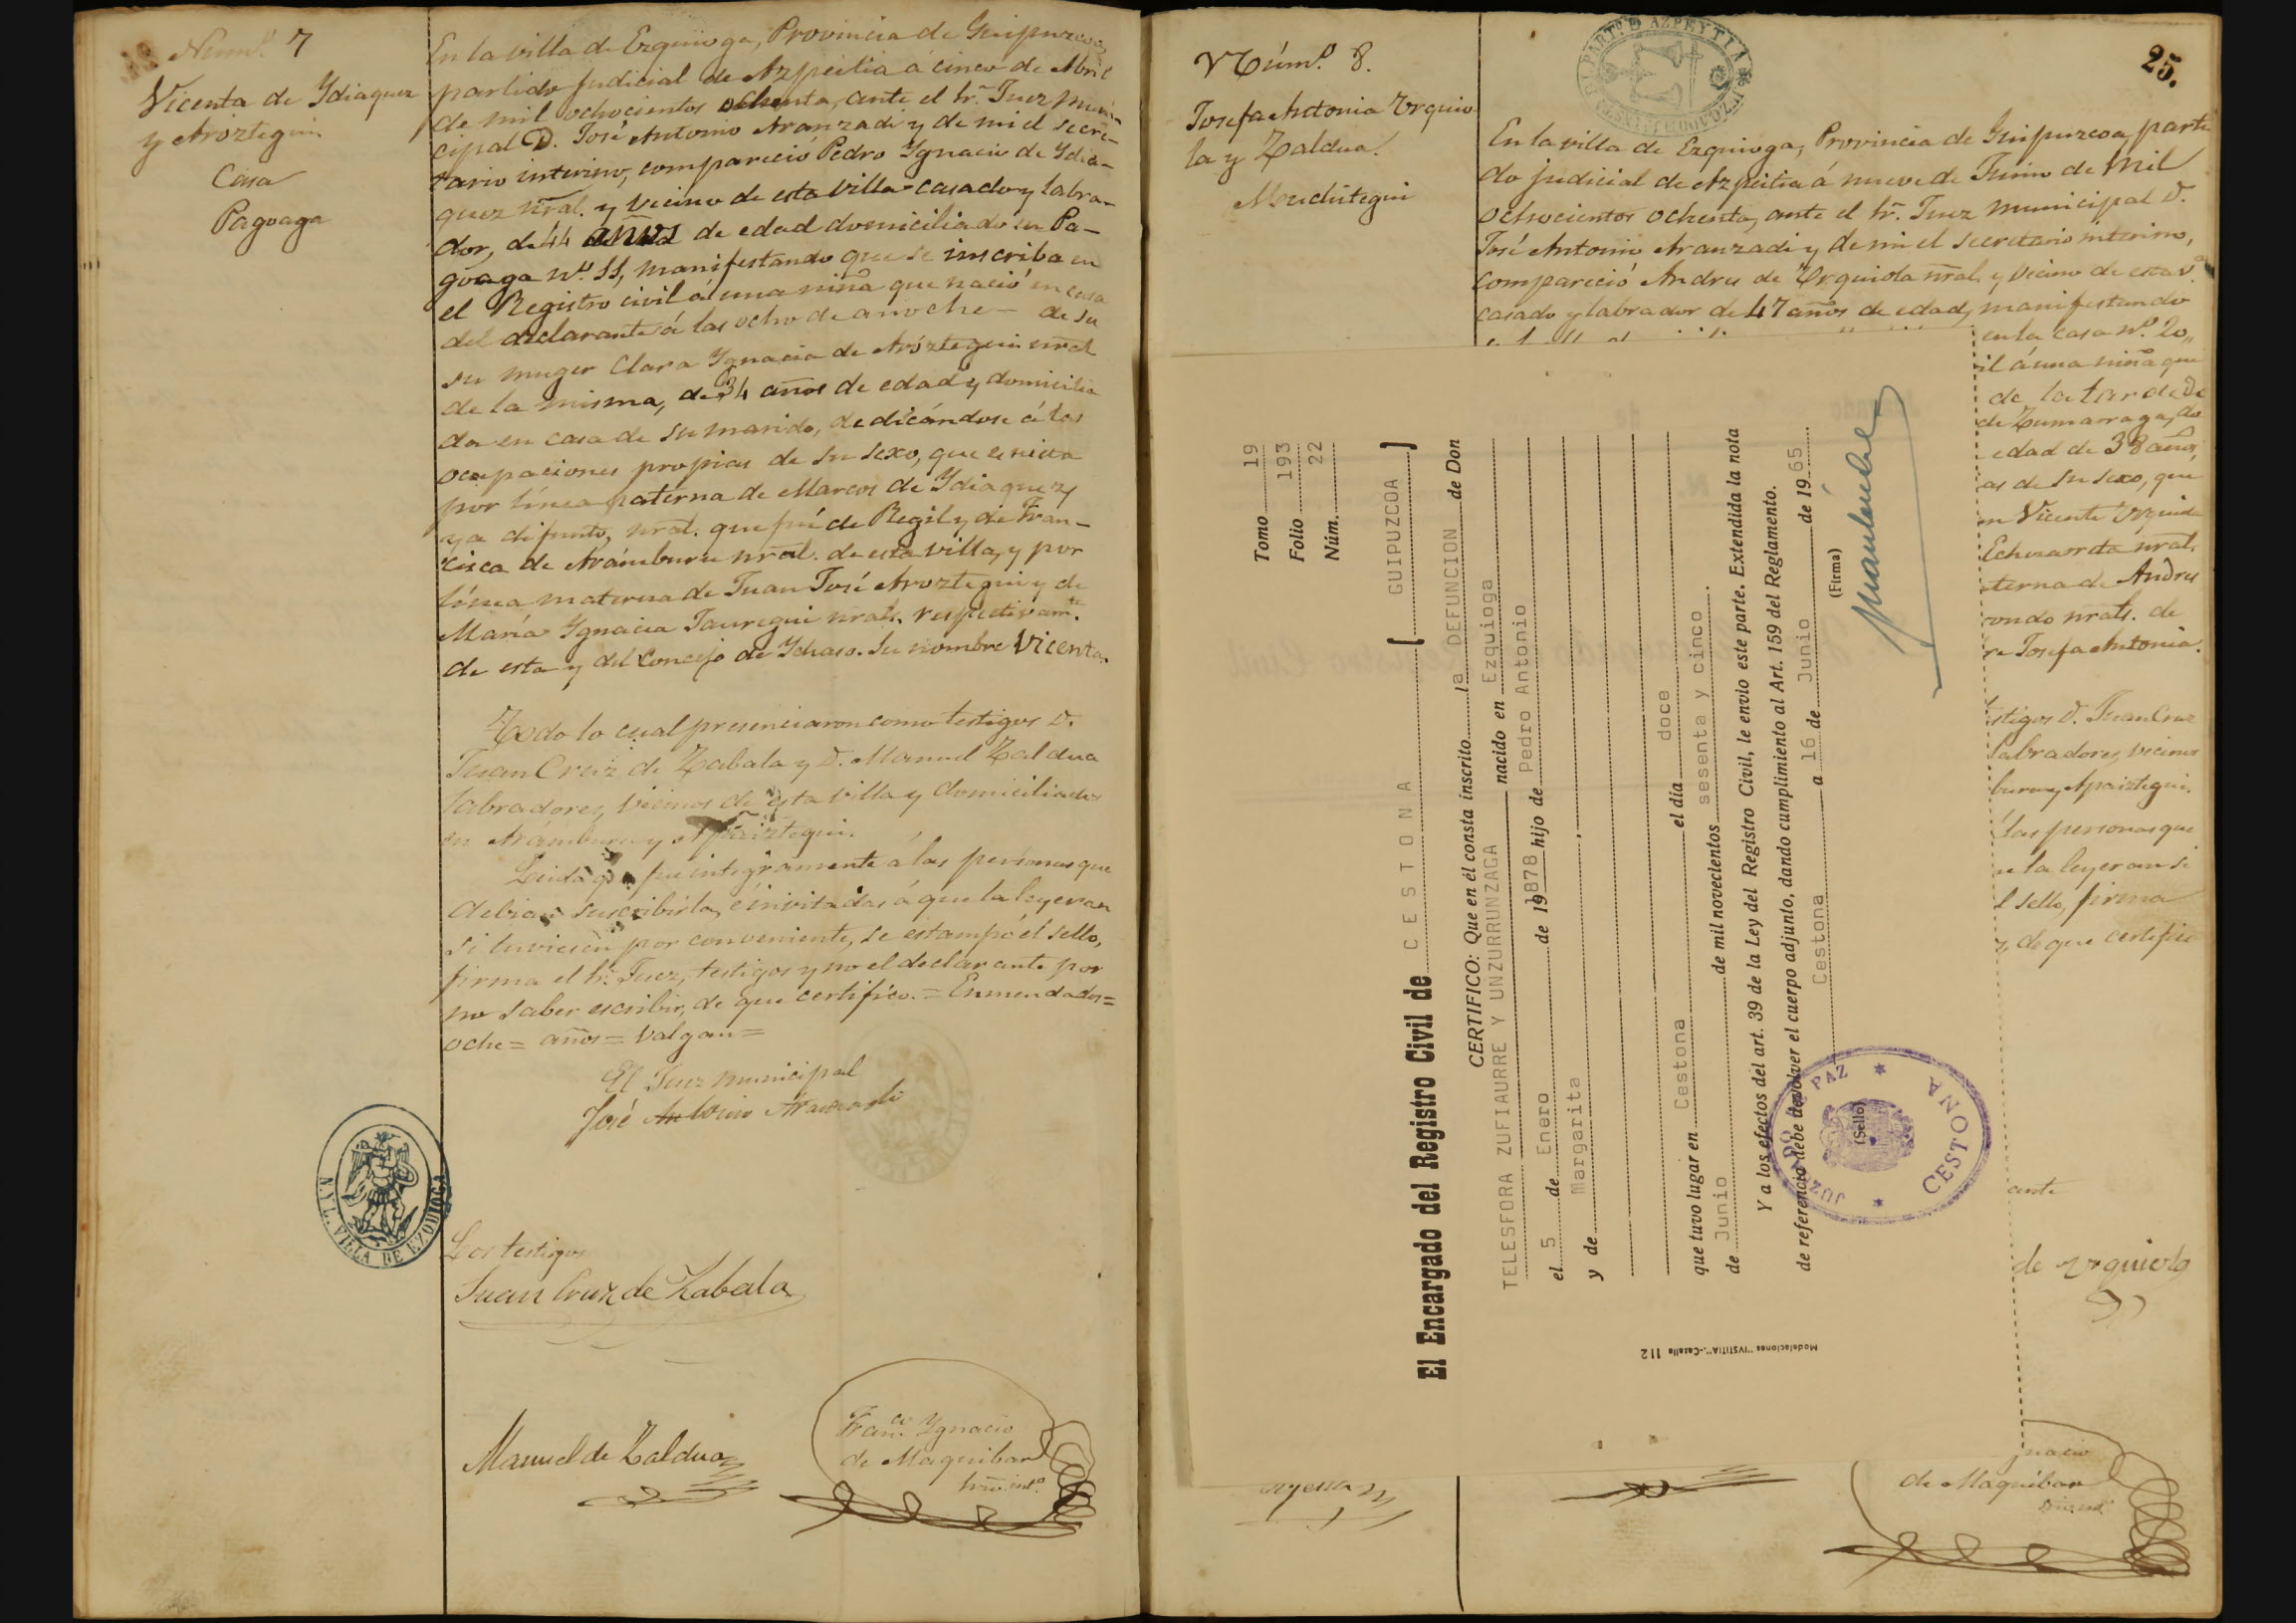 Núm.º 7
Vicenta de Ydiaquez
y Aroztegui.
Casa
Pagoaga
En la villa de Ezquioga, Provincia de Guipuzcoa,
partido judicial de Azpeitia á cinco de Abril
de mil ochocientos ochenta, ante el Sr. Juez muni-
cipal D. José Antonio Aranzadi y de mi el secre-
tario interino, compareció Pedro Ygnacio de Ydia-
quez nral. y vecino de esta villa casado y labra-
dor, de 44 años de edad domiciliado en Pa-
goaga nº 11, manifestando que se inscriba en
el Registro civil á una niña que nació en casa
del declarante á las ocho de anoche — de su
su muger Clara Ygnacia de Aróztegui nral
de la misma, de 34 años de edad y domicilia
da en casa de su marido, dedicándose á las
ocupaciones propias de su sexo, que es nieta
por línea paterna de Marcos de Ydiaquez
ya difunto, nral. que fué de Regil y de Fran-
cisca de Arámburu nral. de esta villa, y por
línea materna de Juan José Aroztegui y de
María Ygnacia Jauregui nrals. respectivamte.
de esta y del Concejo de Ychaso. Su nombre Vicenta.
Todo lo cual presenciaron como testigos D.
Juan Cruz de Zabala y D. Manuel Zaldua
labradores, vecinos de esta villa y domiciliados
en Arámburu y Apaiztegui.
Leida que fué integramente á las personas que
debian suscribirla, é invitadas á que la leyeran
si tuvieren por conveniente, se estampó el sello,
firma el Sr. Juez, testigos y no el declarante por
no saber escribir, de que certifico. = Enmendados =
oche = años = Valgan =
El Juez municipal
José Antonio Aranzadi
N. Y L. VILLA DE EZQUIOGA
Los testigos
Juan Cruz de Zabala
Manuel de Zaldua
Franco. Ygnacio
de Maquibar
Srio. intº.
PARTº DE AZPEYTIA
25.
Núm.º 8.
Josefa Antonia Urquio
la y Zaldua.
Mendiztegui
En la villa de Ezquioga, Provincia de Guipuzcoa, parti
do judicial de Azpeitia á nueve de Junio de mil
ochocientos ochenta, ante el Sr. Juez municipal D.
José Antonio Aranzadi y de mi el secretario interino,
compareció Andres de Urquiola nral. y vecino de esta v.ª
casado y labrador de 47 años de edad, manifestando
en la casa nº. 20,
il á una niña que
de la tarde de
de Zumarraga, do
edad de 38 años,
as de su sexo, que
Vicente Urquiola
Echezarreta nral.
terna de Andres
ondo nrals. de
re Josefa Antonia.
stigos D. Juan Cruz
labradores, vecinos
buru y Apaiztegui.
las personas que
e la leyeran si
l sello, firma
, de que certifico
ante
de Urquiola
gnacio
de Maquibar
Tomo 19
Folio 193
Núm. 22
El Encargado del Registro Civil de CESTONA [ GUIPUZCOA ]
CERTIFICO: Que en él consta inscrito la DEFUNCION de Don
TELESFORA ZUFIAURRE Y UNZURRUNZAGA nacido en Ezquioga
el 5 de Enero de 19878 hijo de Pedro Antonio
y de Margarita
que tuvo lugar en Cestona el día doce
de Junio de mil novecientos sesenta y cinco.
Y a los efectos del art. 39 de la Ley del Registro Civil, le envío este parte. Extendida la nota
de referencia debe devolver el cuerpo adjunto, dando cumplimiento al Art. 159 del Reglamento.
Cestona a 16 de Junio de 1965.
(Firma)
(Sello)
JUZGADO DE PAZ
CESTONA
Modelaciones "IVSTITIA".-Cazalla 112